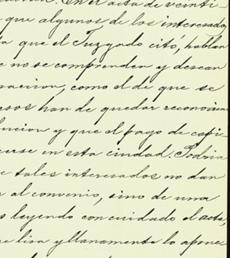 En el acta de veinti
que algunos de los interesado
a que el Juzgado citó, hablan
e no se comprenden y desean
como el de que se
asos han de quedar reconoci
y que el pago de capi
cerse en esta ciudad. Podria
e tales interesados no dan
al convenio, sino de una
s leyendo con cuidado el acta,
ue lisa y llanamente lo apone